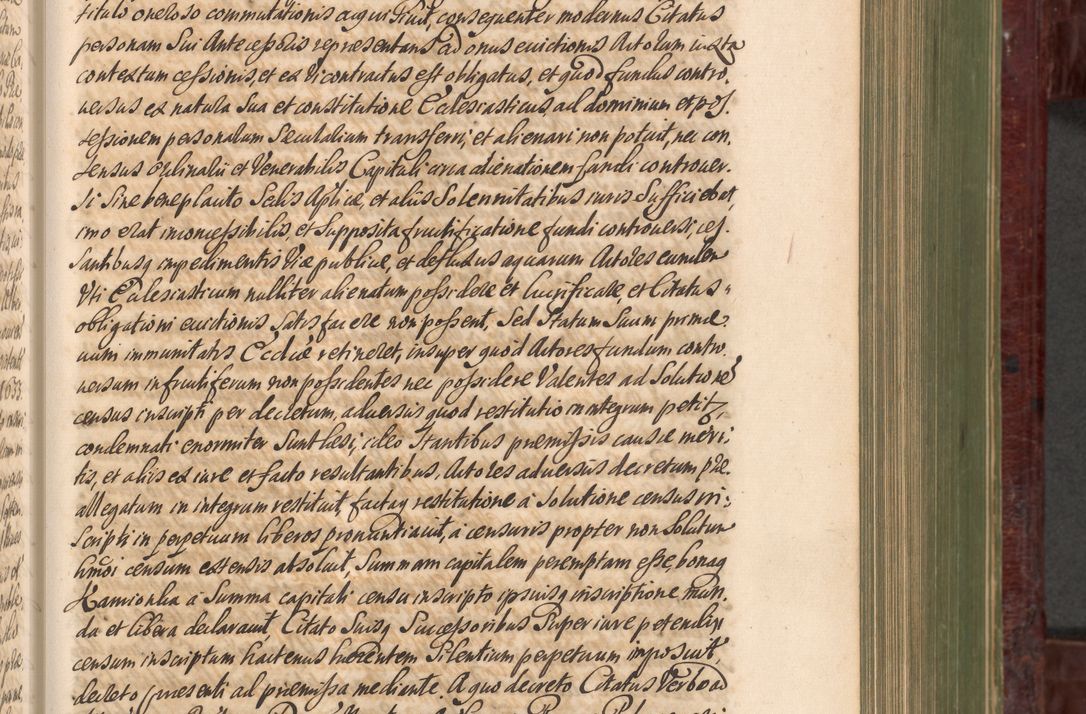 titulo oneroso commutationis acquisivit, consequenter modernus Citatus
personam sui Antecessoris repræsentans ad onus evictionis Actorum iuxta
contextum cessionis, et ex vi contractus est obligatus, et quod fundus contro,
versus ex natura sua et constitutione Ecclesiasticus, ad dominium et pos,
sessionem personarum sæcularium transferri, et alienari non potuit, nec con,
sensus Ordinarii et Venerabilis Capituli circa alienationem fundi controver,
si sine beneplacito Sedis Aplicæ, et aliis Solennitatibus iuris sufficiebat,
imo erat inconcessibilis, et supposita fructificatione fundi controversi, ces,
santibusq impedimentis viæ publicæ, et defluxus aquarum Actores eundem
Uti Ecclesiasticum nulliter alienatum possidere et lucrificare, et Citatus
obligationi evictionis satisfacere non possent, sed statum suum primæ
vum immunitatis Eccliæ retineret, insuper quod Actores fundum contro
versum infructiferum non possidentes nec possidere valentes ad solutione
census inscripti per decretum, adversus quod restitutio in integrum petit,
condemnati enormiter sunt læsi, ideo stantibus præmissis causæ meri,
tis, et aliis ex iure et facto resultantibus, Actores adversus decretum præ,
allegatum in integrum restituit, factaq restitutione a solutione census in,
scripti in perpetuum liberos pronuntiavit, a censuris propter non solutum
hmoi censum extensis absolvit, Summam capitalem peremptam esse, bonaq
Kamionka a Summa capitali censu inscripto ipsiusq inscriptione mun,
da et libera declaravit, Citato suisq Successoribus super iure petendi
censum inscriptum hactenus hærentem silentium perpetuum imposuit,
decreto præsenti ad præmissa mediante. A quo decreto Citatus Verbo ad